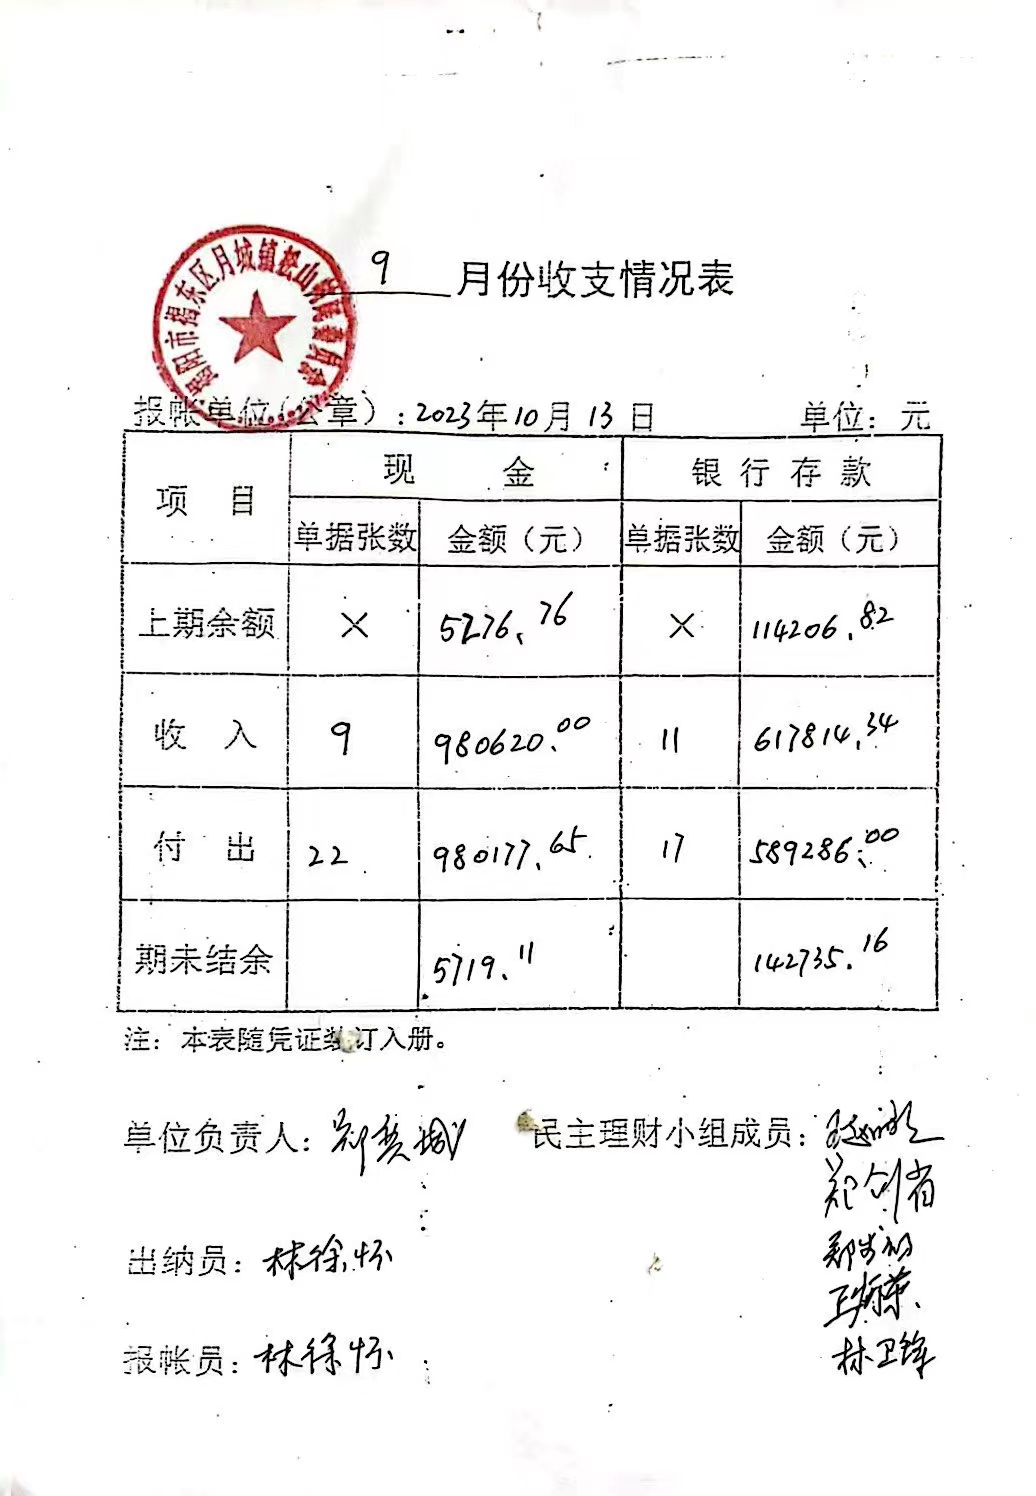 9 月份收支情况表
揭阳市揭东区月城镇松山村民委员会
报帐单位(公章):2023年10月13日 单位:元
项目 现金 银行存款
单据张数 金额(元) 单据张数 金额(元)
上期余额 × 5276.76 × 114206.82
收入 9 980620.00 11 617814.34
付出 22 980177.65 17 589286.00
期未结余 5719.11 142735.16
注:本表随凭证装订入册。
单位负责人: 民主理财小组成员:
郑创省
出纳员:林徐怀
报帐员:林徐怀
林卫锋